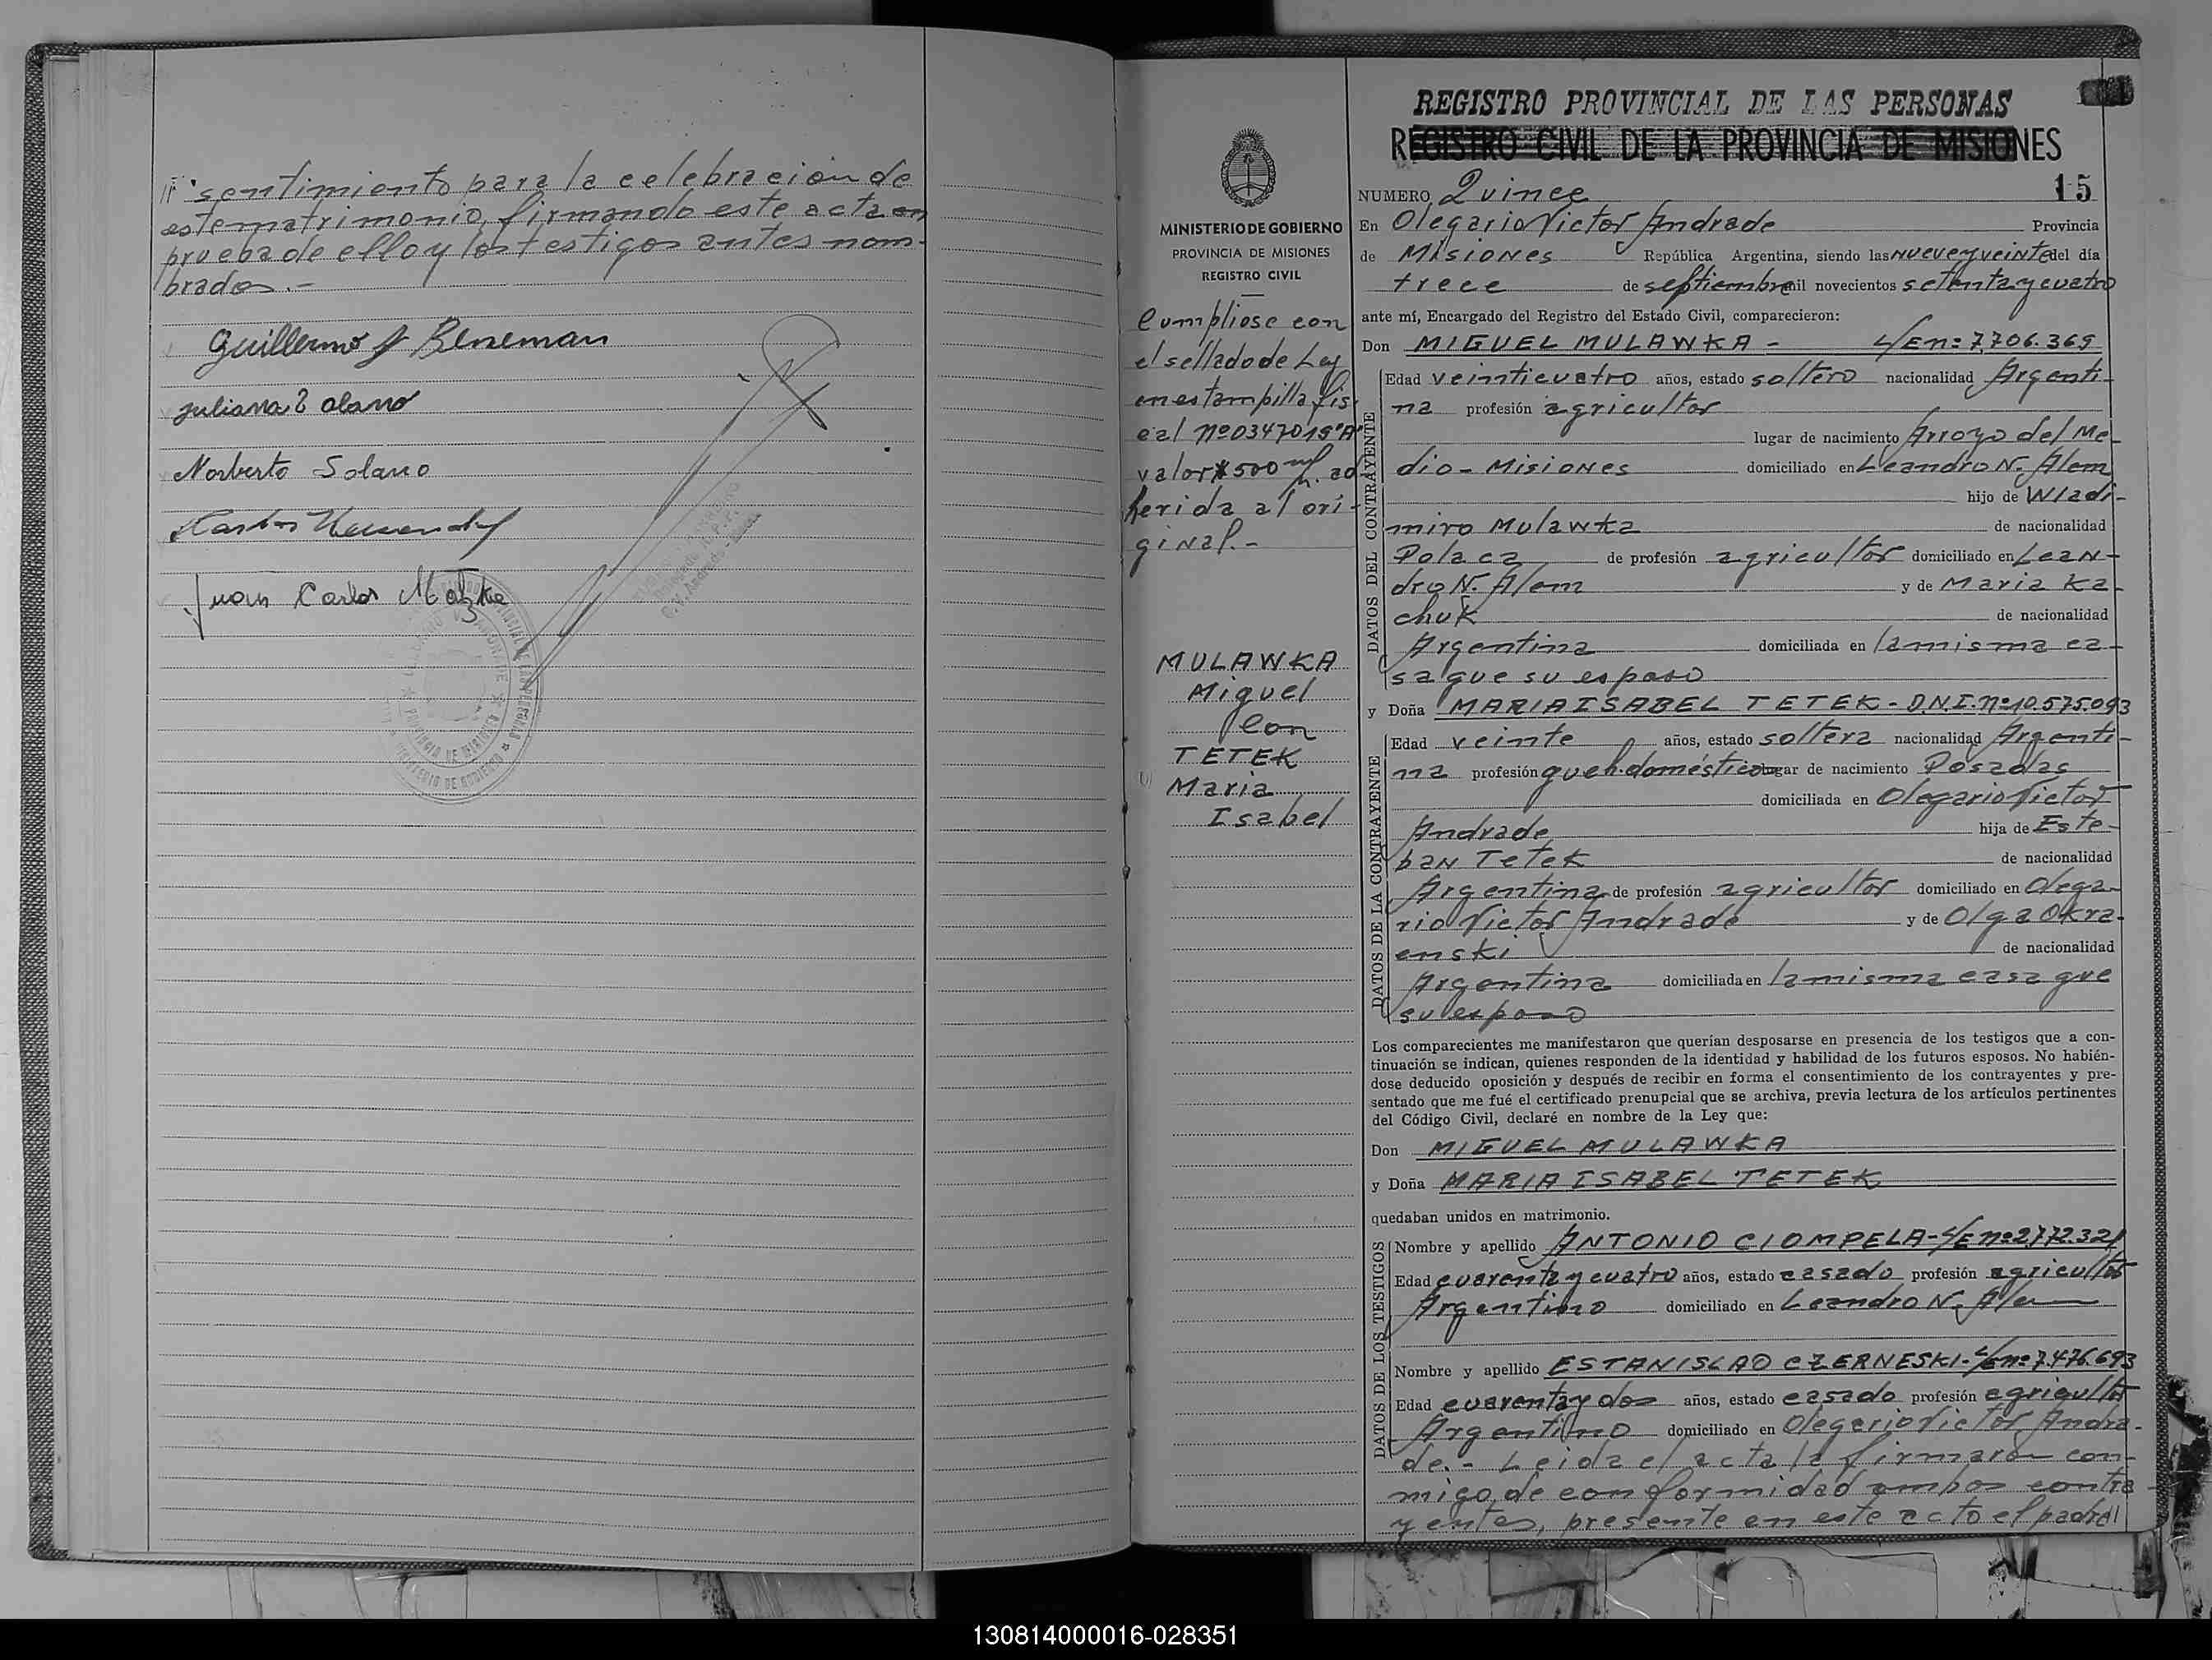 sentimiento para la celebracion de
este matrimonio, firmando este acta en
prueba de ello y los testigos antes nom-
brados.-
Guillermo J Beneman
Juliana Z olano
Norberto Solano
Juan Carlos
PROVINCIA DE MISIONES
MINISTERIO DE GOBIERNO
MINISTERIO DE GOBIERNO
PROVINCIA DE MISIONES
REGISTRO CIVIL
Cumpliose con
el sellado de Ley
en estampilla fis-
cal Nº 0347019"A"
valor $ 500 m/n. ad
herida al ori-
ginal.-
MULAWKA
Miguel
Con
TETEK
Maria
Isabel
REGISTRO PROVINCIAL DE LAS PERSONAS
REGISTRO CIVIL DE LA PROVINCIA DE MISIONES
NUMERO Quince 15
En Olegario Victor Andrade Provincia
de Misiones República Argentina, siendo las nueve y veinte del día
trece de septiembre mil novecientos setenta y cuatro
ante mí, Encargado del Registro del Estado Civil, comparecieron:
Don MIGUEL MULAWKA - L/E nº 7.706.369
DATOS DEL CONTRAYENTE
Edad veinticuatro años, estado soltero nacionalidad Argenti-
na profesión agricultor
lugar de nacimiento Arroyo del Me-
dio - Misiones domiciliado en Leandro N. Alem
hijo de Wladi-
miro Mulawka de nacionalidad
Polaca de profesión agricultor domiciliado en Lean-
dro N. Alem y de Maria Ka-
chuk de nacionalidad
Argentina domiciliada en la misma ca-
sa que su esposo
y Doña MARIA ISABEL TETEK - D.N.I. nº 10.575.093
DATOS DE LA CONTRAYENTE
Edad veinte años, estado soltera nacionalidad Argenti-
na profesión queh. doméstico lugar de nacimiento Posadas
domiciliada en Olegario Victor
Andrade hija de Este-
ban Tetek de nacionalidad
Argentina de profesión agricultor domiciliado en Olega-
rio Victor Andrade y de Olga Okra-
enski de nacionalidad
Argentina domiciliada en la misma casa que
su esposo
Los comparecientes me manifestaron que querían desposarse en presencia de los testigos que a con-
tinuación se indican, quienes responden de la identidad y habilidad de los futuros esposos. No habién-
dose deducido oposición y después de recibir en forma el consentimiento de los contrayentes y pre-
sentado que me fué el certificado prenupcial que se archiva, previa lectura de los artículos pertinentes
del Código Civil, declaré en nombre de la Ley que:
Don MIGUEL MULAWKA
y Doña MARIA ISABEL TETEK
quedaban unidos en matrimonio.
DATOS DE LOS TESTIGOS
Nombre y apellido ANTONIO CIOMPELA - L/E nº 2.772.321
Edad cuarenta y cuatro años, estado casado profesión agricultor
Argentino domiciliado en Leandro N. Alem
Nombre y apellido ESTANISLAO CZERNESKI - L/E nº 7.476.693
Edad cuarenta y dos años, estado casado profesión agricultor
Argentino domiciliado en Olegario Victor Andra-
de.- Leida el acta la firmaron con-
migo de conformidad ambos contra-
yentes, presente en este acto el padre//
130814000016-028351